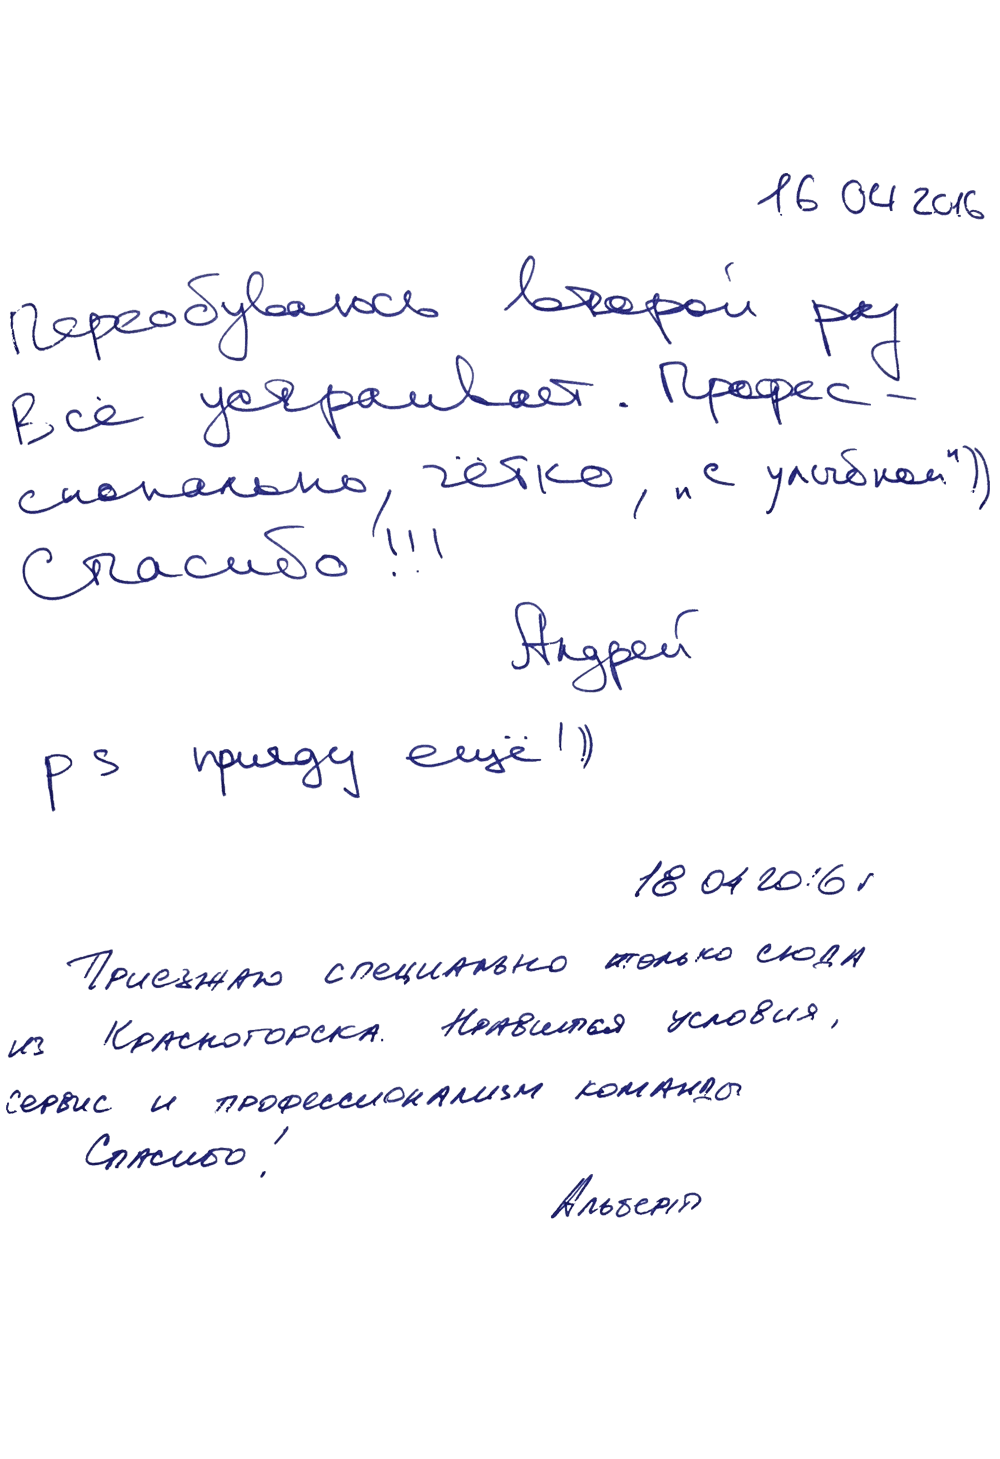 16 04 2016
Переобуваюсь второй раз
Всё устраивает. Профес-
сионально, чётко, „с улыбкой"))
Спасибо!!!
Андрей
ps приеду ещё!))
18 04 2016 г
Приезжаю специально только сюда
из Красногорска. Нравится условия,
сервис и профессионализм команды
Спасибо!
Альберт